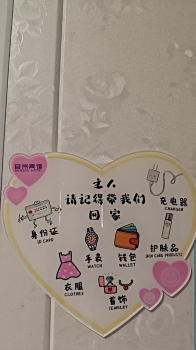 主人
请记得带我们
回家
充电器
CHARGER
身份证
ID CARD
手表
WATCH
钱包
WALLET
护肤品
SKIN CARE PRODUCTS
衣服
CLOTHES
首饰
JEWELRY